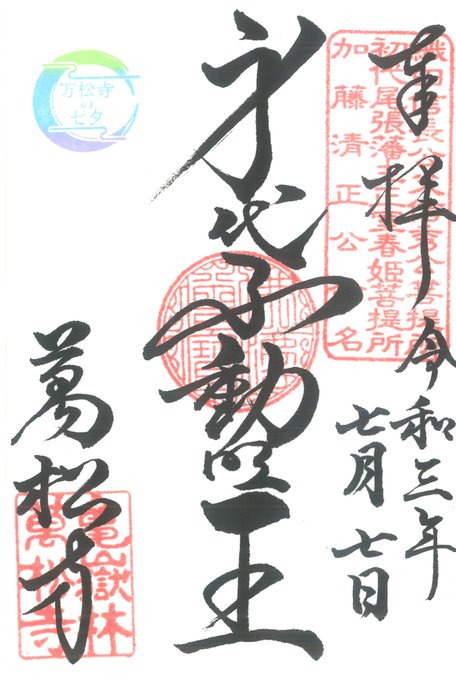 奉拝
令和三年
七月七日
織田信長公
初代尾張藩主正室春姫菩提所
加藤清正公
名
身代不動明王
萬松寺
亀嶽林
萬松寺
万松寺
の
七夕